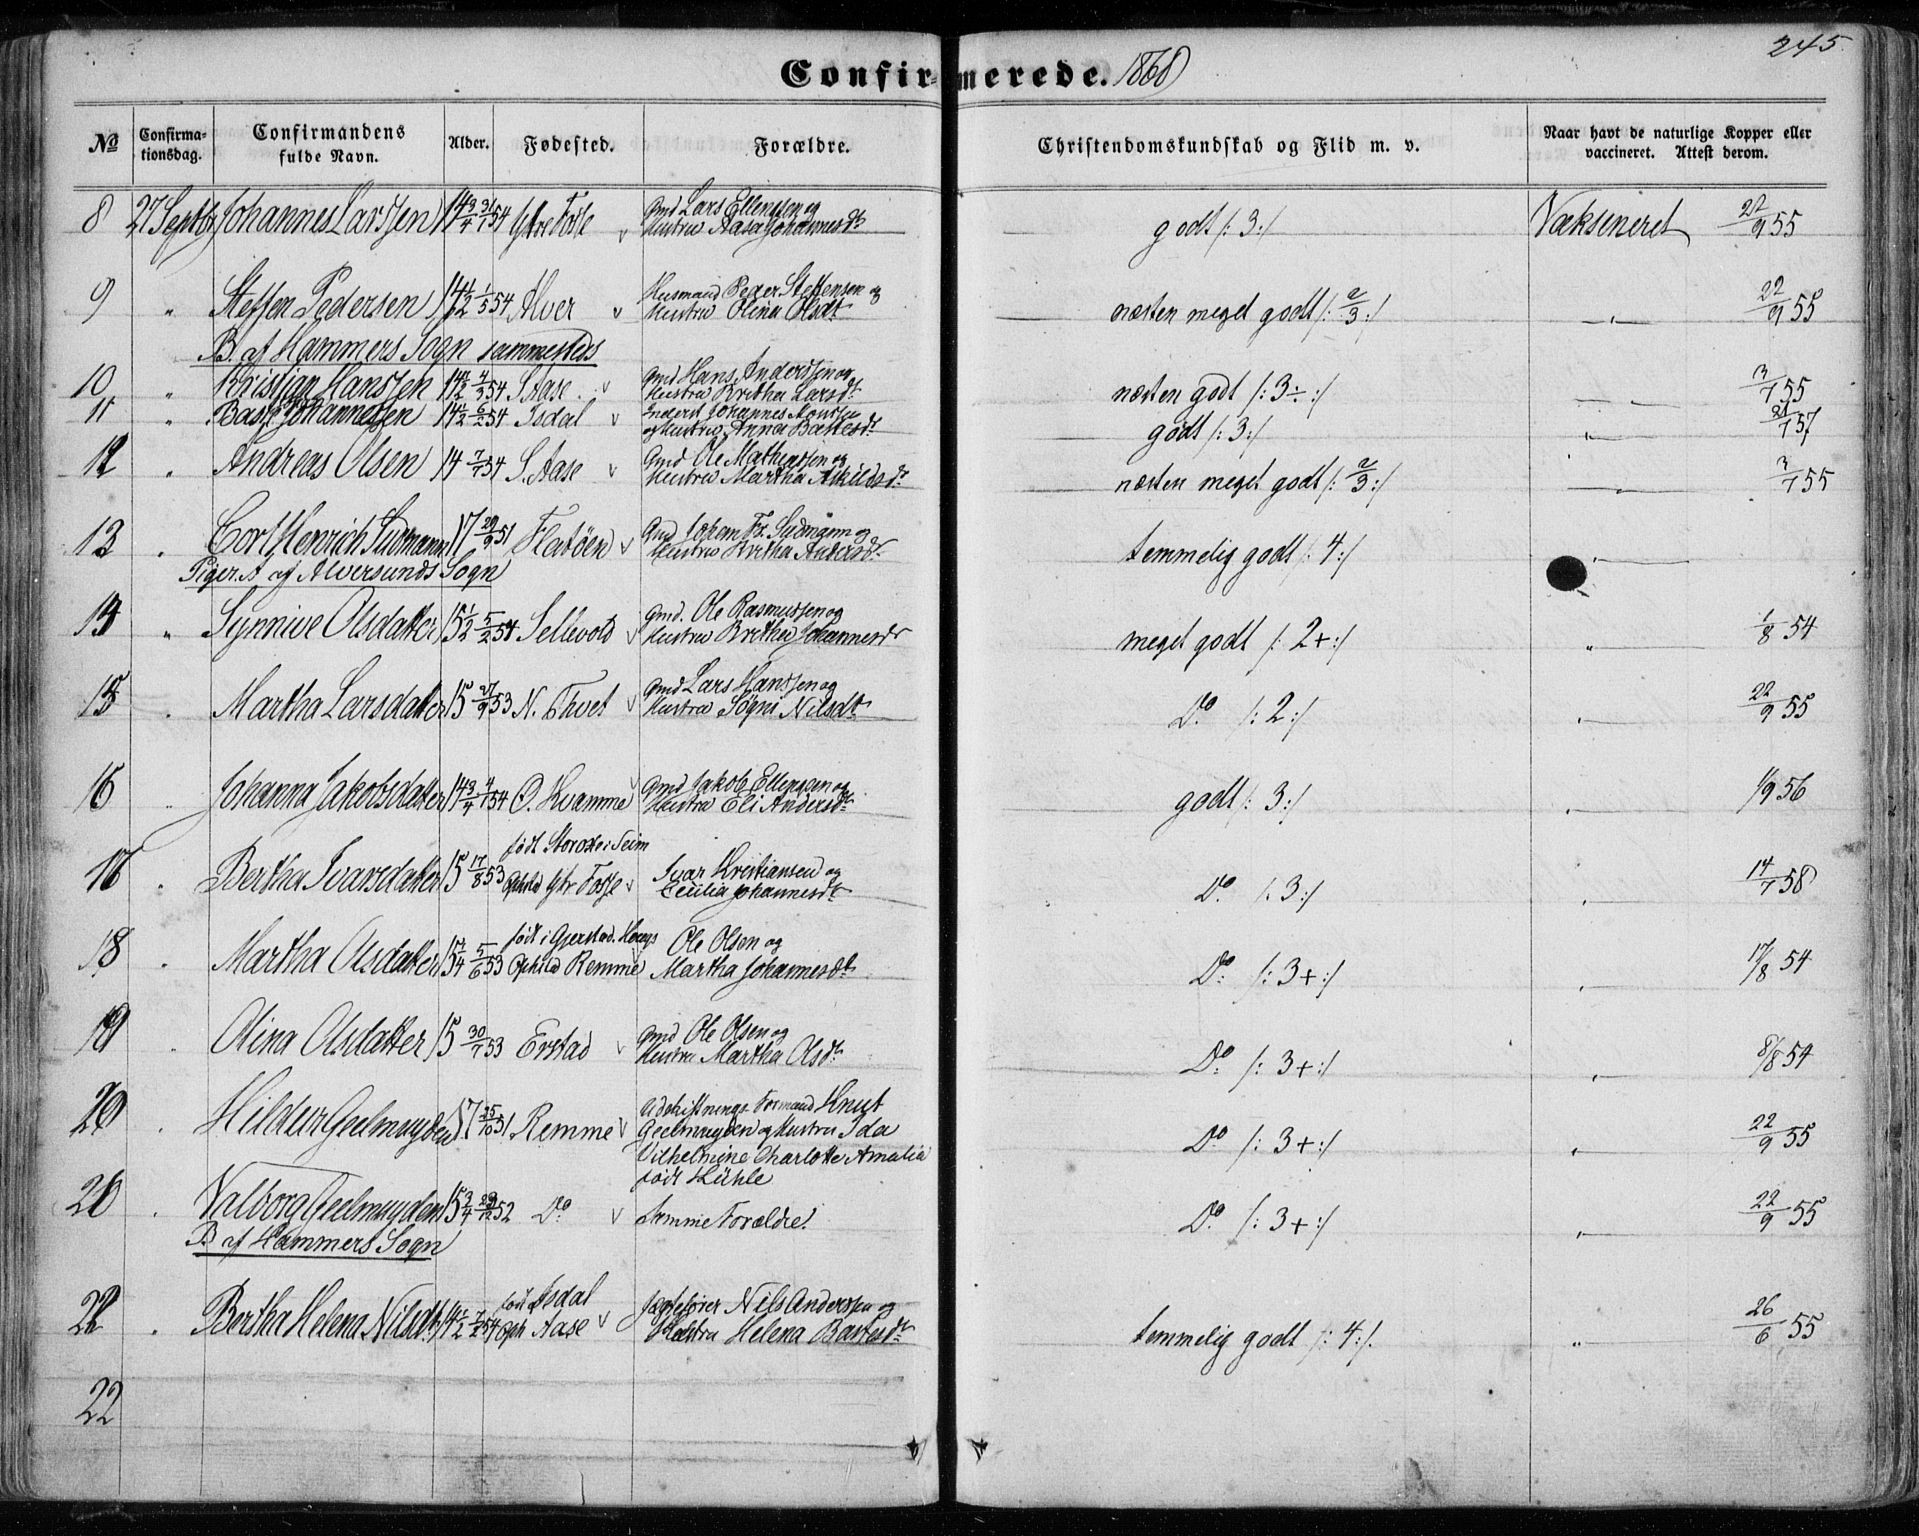 245
Confirmerede. 1868
No
Confirmationsdag.
Confirmandens fulde Navn.
Alder.
Fødested.
Forældre.
Christendomskundskab og Flid m. v.
Naar havt de naturlige Kopper eller vaccineret. Attest derom.
8 27 Septbr Johannes Larssen 14 3/4 31/1 54 Ytre Fosse Gmd Lars Ellingsen og Hustru Aasa Johannesdt godt /: 3 :/ Vaksineret 22/9 55
9 " Steffen Pedersen 14 1/2 1/5 54 Alver Husmand Peder Steffensen og Hustru Olina Olsdt næsten meget godt /: 2/3 :/ " 22/9 55
B. af Hammers Sogn sammesteds
10 " Kristjan Hanssen 14 1/2 4/3 54 S. Aase Gmd Hans Anderssen og Hustru Britha Larsdt næsten godt /: 3÷ :/ " 3/7 55
11 " Johannessen 14 1/2 6/2 54 Isdal Johannes Monsen og Hustru Anna godt /: 3 :/ " 21/7 57
12 " Andreas Olsen 14 7/7 54 S. Aase Gmd Ole Mathiassen og Hustru Martha Askildsdt næsten meget godt /: 2/3 :/ " 3/7 55
13 " Cort Henrich Sudmann 17 29/9 51 Flatøen Gmd Johan Fr. Sudmann og Hustru Britha Andersdt temmelig godt /: 4 :/ "
Piger. A af Alversunds Sogn
14 " Synnive Olsdatter 15 1/2 5/2 54 Sellevold Gmd. Ole Rasmussen og Hustru Britha Johannesdt meget godt /: 2+ :/ " 1/8 54
15 " Martha Larsdatter 15 27/9 53 N. Thvet Gmd Lars Hanssen og Hustru Søgni Nilsdt Do /: 2 :/ " 22/9 55
16 " Johanna Jakobsdatter 14 3/4 4/1 54 O. Kvamme Gmd Jakob Ellingsen og Hustru Eli Andersdt godt /: 3 :/ " 1/9 56
født i Seim
17 " Bertha Ivarsdatter 15 17/8 53 Ophold Ytr Fosse Ivar Kristiansen og Cecilia Johannesdt Do /: 3 :/ " 14/7 58
født i Gjerstad. Hougs
18 " Martha Olsdatter 15 1/4 5/6 53 Ophold Remme Ole Olsen og Martha Johannesdt Do /: 3+ :/ " 17/8 54
19 " Olina Olsdatter 15 30/7 53 Erstad Gmd Ole Olsen og Hustru Martha Olsdt Do /: 3+ :/ " 8/8 54
20 " Hildur Geelmuyden 17 25/10 51 Remme Udskiftnings Formand Knut Geelmuyden og Hustru Ida Vilhelmine Charlotte Amalia født Kühle Do /: 3+ :/ " 22/9 55
20 " Valborg Geelmuyden 15 3/4 29/12 52 Do Samme Forældre. Do /: 3+ :/ " 22/9 55
B af Hammers Sogn
22 " Bertha Helena Nilsdt 14 1/2 7/2 54 født Isdal Oph Aase Jagtefører Nils Anderssen og Hustru Helena temmelig godt /: 4 :/. " 26/6 55
22